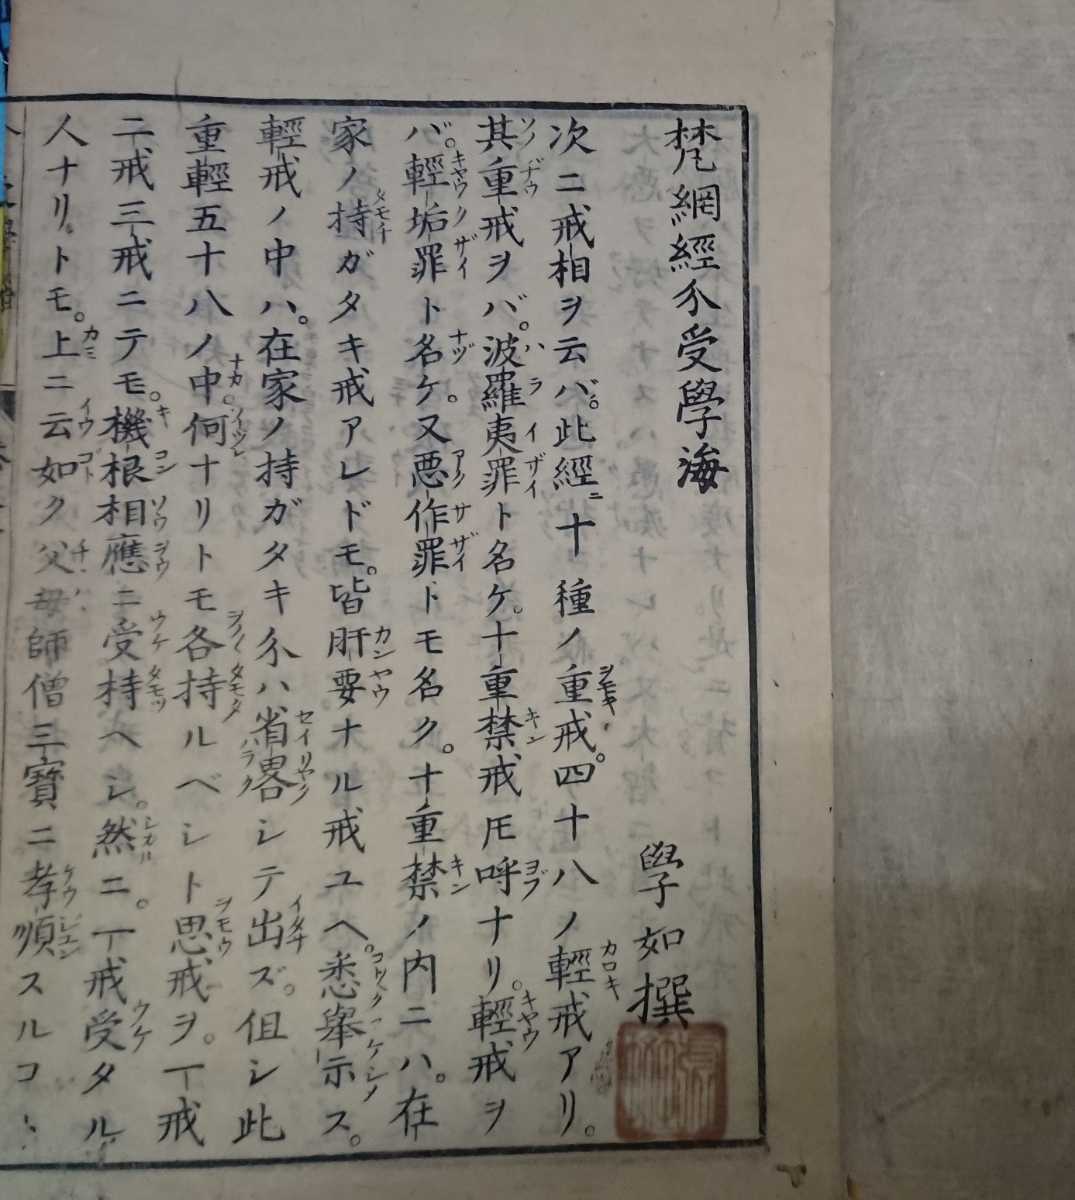 梵網經分受學海
學如撰
次ニ戒相ヲ云バ。此經ニ十種ノ重戒。四十八ノ輕戒アリ。
其重戒ヲバ。波羅夷罪ト名ケ。十重禁戒𪜈呼ナリ。輕戒ヲ
バ。輕垢罪ト名ケ。又悪作罪トモ名ク。十重禁ノ内ニハ。在
家ノ持ガタキ戒アレドモ。皆肝要ナル戒ユヘ。悉舉示ス。
輕戒ノ中ハ。在家ノ持ガタキ分ハ省畧シテ出ズ。但シ此
重輕五十八ノ中。何ナリトモ各持ルベシト思戒ヲ。一戒
二戒三戒ニテモ。機根相應ニ受持ヘシ。然ニ。一戒受タル
人ナリトモ。上ニ云如ク父母師僧三寶ニ孝順スルコ